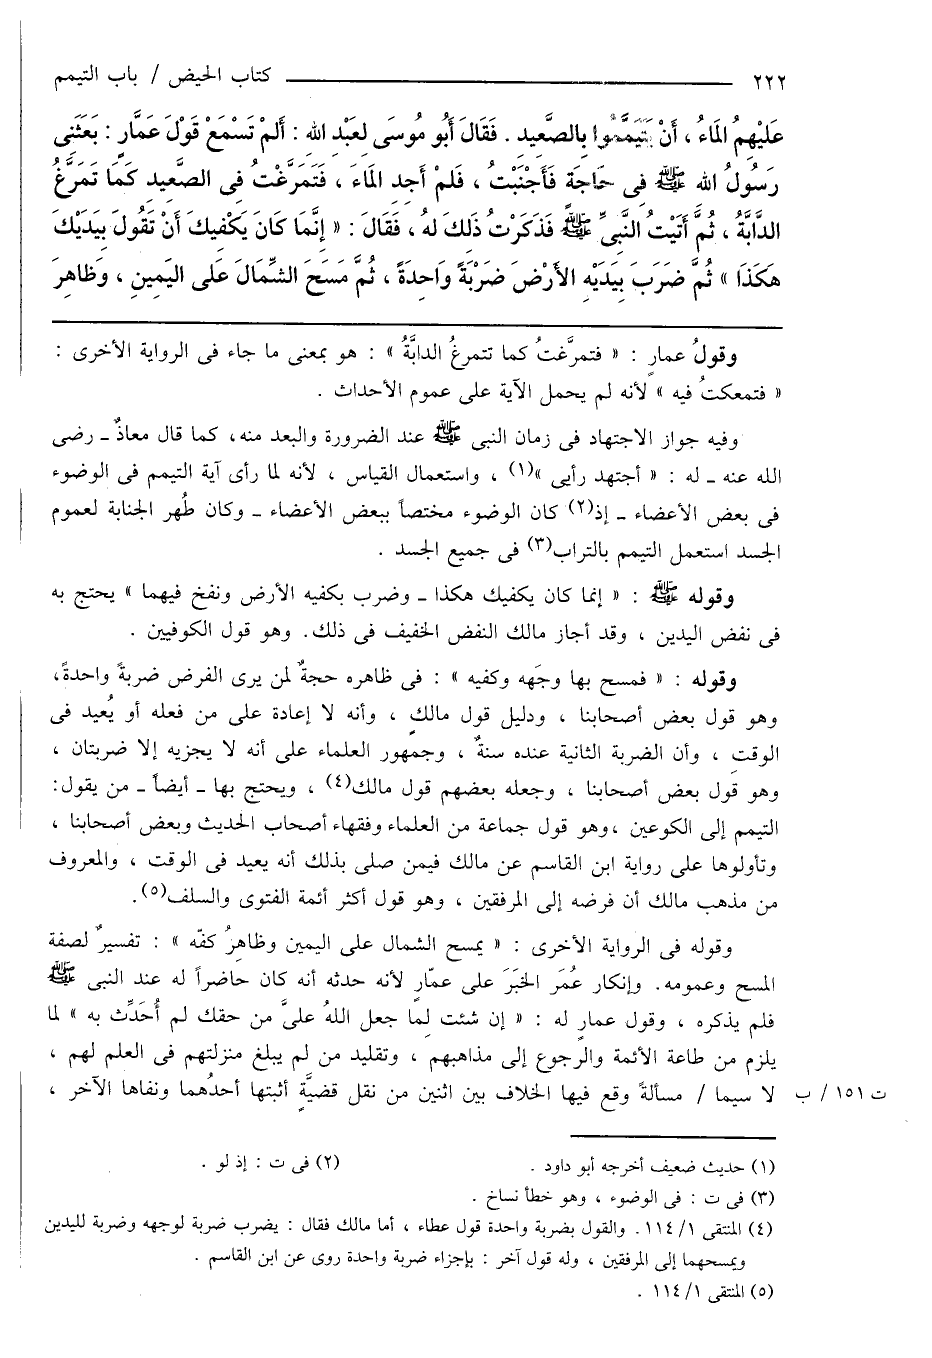 ٢٢٢ كتاب الحيض / باب التيمم
عَلَيْهِمُ المَاءُ ، أَنْ يَتَيَمَّمُوا بِالصَّعِيدِ . فَقَالَ أَبُو مُوسَى لِعَبْدِ اللهِ : أَلَمْ تَسْمَعْ قَوْلَ عَمَّارٍ : بَعَثَنِى
رَسُولُ اللهِ ﷺ فِى حَاجَةٍ فَأَجْنَبْتُ ، فَلَمْ أَجِدِ المَاءَ ، فَتَمَرَّغْتُ فِى الصَّعِيدِ كَمَا تَمَرَّغُ
الدَّابَّةُ ، ثُمَّ أَتَيْتُ النَّبِىَّ ﷺ فَذَكَرْتُ ذَلِكَ لَهُ ، فَقَالَ : « إِنَّمَا كَانَ يَكْفِيكَ أَنْ تَقُولَ بِيَدَيْكَ
هَكَذَا » ثُمَّ ضَرَبَ بِيَدَيْهِ الأَرْضَ ضَرْبَةً وَاحِدَةً ، ثُمَّ مَسَحَ الشِّمَالَ عَلَى اليَمِينِ ، وَظَاهِرَ
وقولُ عمارٍ : « فتمرَّغتُ كما تتمرغُ الدابَّةُ » : هو بمعنى ما جاء فى الرواية الأخرى :
« فتمعكتُ فيه » لأنه لم يحمل الآية على عموم الأحداث .
وفيه جواز الاجتهاد فى زمان النبى ﷺ عند الضرورة والبعد منه، كما قال معاذٌ ـ رضى
الله عنه ـ له : « أجتهد رأيى »(١) ، واستعمال القياس ، لأنه لما رأى آية التيمم فى الوضوء
فى بعض الأعضاء ـ إذ(٢) كان الوضوء مختصاً ببعض الأعضاء ـ وكان طُهر الجنابة لعموم
الجسد استعمل التيمم بالتراب(٣) فى جميع الجسد .
وقوله ﷺ : « إنما كان يكفيك هكذا ـ وضرب بكفيه الأرض ونفخ فيهما » يحتج به
فى نفض اليدين ، وقد أجاز مالك النفض الخفيف فى ذلك. وهو قول الكوفيين .
وقوله : « فمسح بها وجهَه وكفيه » : فى ظاهره حجةٌ لمن يرى الفرض ضربةً واحدةً،
وهو قول بعض أصحابنا ، ودليل قول مالكٍ ، وأنه لا إعادة على من فعله أو يُعيد فى
الوقتِ ، وأن الضربة الثانية عنده سنةٌ ، وجمهور العلماء على أنه لا يجزيه إلا ضربتان ،
وهو قول بعض أصحابنا ، وجعله بعضهم قول مالك(٤) ، ويحتج بها ـ أيضاً ـ من يقول:
التيمم إلى الكوعين ،وهو قول جماعة من العلماء وفقهاء أصحاب الحديث وبعض أصحابنا ،
وتأولوها على رواية ابن القاسم عن مالك فيمن صلى بذلك أنه يعيد فى الوقت ، والمعروف
من مذهب مالك أن فرضه إلى المرفقين ، وهو قول أكثر أئمة الفتوى والسلف(٥).
وقوله فى الرواية الأخرى : « يمسح الشمال على اليمين وظاهرُ كفّه » : تفسيرٌ لصفة
المسح وعمومه. وإنكار عُمَر الخبَرَ على عمّارٍ لأنه حدثه أنه كان حاضراً له عند النبى ﷺ
فلم يذكره ، وقول عمارٍ له : « إن شئت لِما جعل اللهُ علىَّ من حقك لم أُحَدِّث به » لما
يلزم من طاعة الأئمة والرجوع إلى مذاهبهم ، وتقليد من لم يبلغ منزلتهم فى العلم لهم ،
لا سيما / مسألةً وقع فيها الخلاف بين اثنين من نقل قضيَّةٍ أثبتها أحدُهما ونفاها الآخر ،
ت ١٥١ / ب
(١) حديث ضعيف أخرجه أبو داود . (٢) فى ت : إذ لو .
(٣) فى ت : فى الوضوء ، وهو خطأ نساخ .
(٤) المنتقى ١/ ١١٤. والقول بضربة واحدة قول عطاء ، أما مالك فقال : يضرب ضربة لوجهه وضربة لليدين
ويمسحهما إلى المرفقين ، وله قول آخر : بإجزاء ضربة واحدة روى عن ابن القاسم .
(٥) المنتقى ١/ ١١٤ .